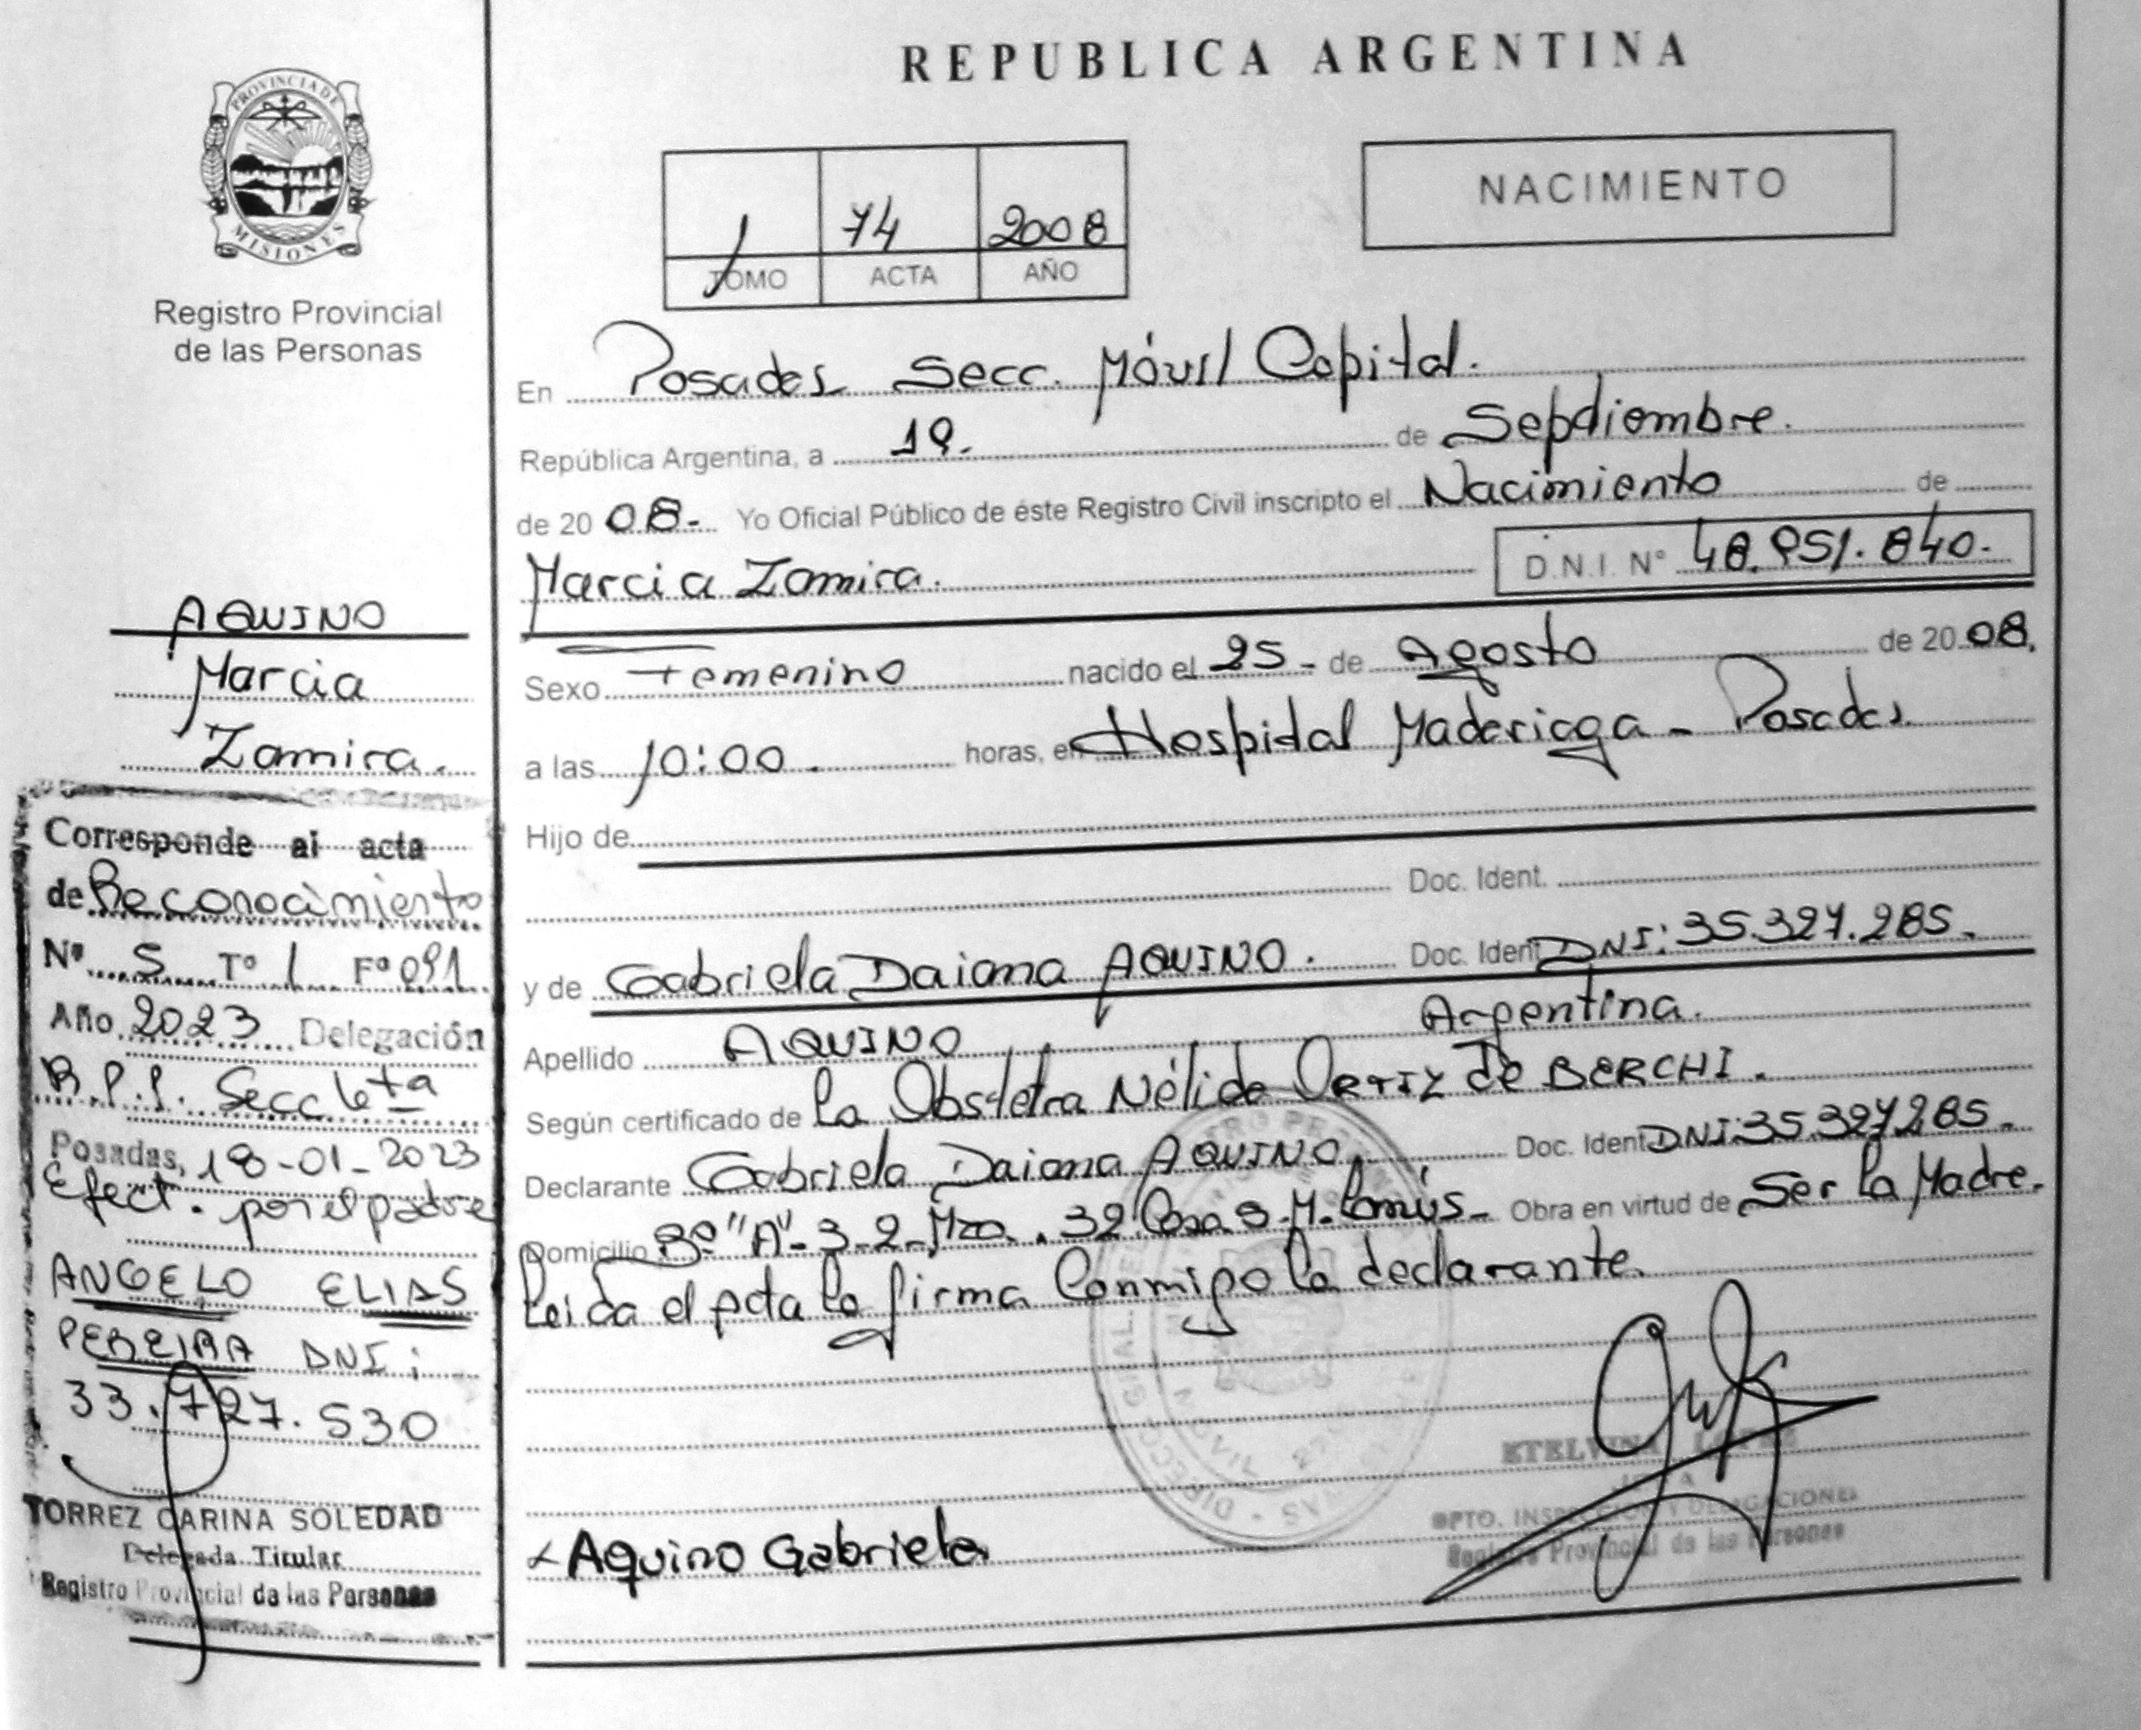 REPUBLICA ARGENTINA
PROVINCIA DE
MISIONES
Registro Provincial
de las Personas
1 74 2008
TOMO ACTA AÑO
NACIMIENTO
En Posadas Secc. Móvil Capital.
República Argentina, a 19. de Septiembre.
de 20 08.- Yo Oficial Público de éste Registro Civil inscripto el Nacimiento de
Marcia Zamira. D.N.I. Nº 48.951.840.-
Sexo Femenino nacido el 25 - de Agosto de 20 08.
a las 10:00. horas, en Hospital Madariaga - Posadas.
Hijo de
Doc. Ident.
y de Gabriela Daiana AQUINO. Doc. Ident DNI: 35.327.285.-
Apellido AQUINO Argentina.
Según certificado de La Obstetra Nélida ORTIZ de BERCHI.
Declarante Gabriela Daiana AQUINO Doc. Ident DNI: 35.327.285.-
Domicilio Bº "A"- 3-2-Mza. 32 Casa 3-M. Lanús- Obra en virtud de Ser La Madre.
Leida el acta la firma Conmigo la declarante.
Aquino Gabriela
ETELVINA LOPEZ
DPTO. INSPECCION Y DELEGACIONES
Registro Provincial de las Personas
AQUINO
Marcia
Zamira.
Corresponde al acta
de Reconocimiento
Nº 5 Tº 1 Fº 091
Año 2023 Delegación
R.P.P. Secc 6ta
Posadas, 18-01-2023
Efect. por el padre
ANGELO ELIAS
PEREIRA DNI:
33.727.530
TORREZ CARINA SOLEDAD
Delegada Titular
Registro Provincial de las Personas